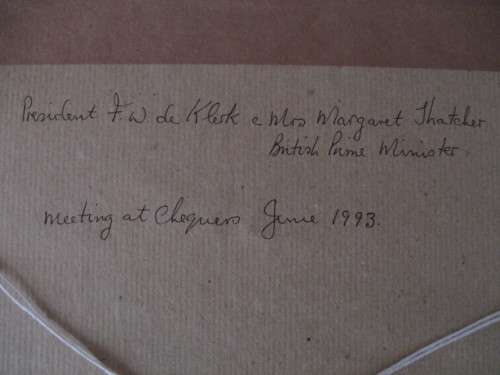 President F.W. de Klerk e Mrs Margaret Thatcher
British Prime Minister.
meeting at Chequers June 1993.